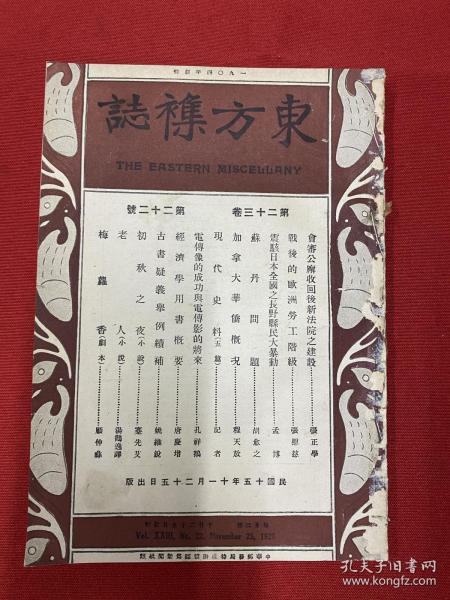 一九〇四年創刊
東方雜誌
THE EASTERN MISCELLANY
第二十三卷
第二十二號
會審公廨收回後新法院之建設 張正學
戰後的歐洲勞工階級 張慰慈
震駭日本全國之長野縣民大暴動 孟博
蘇丹問題 胡愈之
加拿大華僑概況 程天放
現代史料(五篇) 記者
電傳像的成功與電傳影的將來 孔祥鵝
經濟學用書概要 唐慶增
古書疑義舉例續補 姚維銳
初秋之夜(小說) 蹇先艾
老人(小說) 湯鶴逸譯
梅蘿香(劇本) 顧仲彝
民國十五年十一月二十五日出版
Vol. XXIII, No. 22, November 25, 1926
孔夫子旧书网